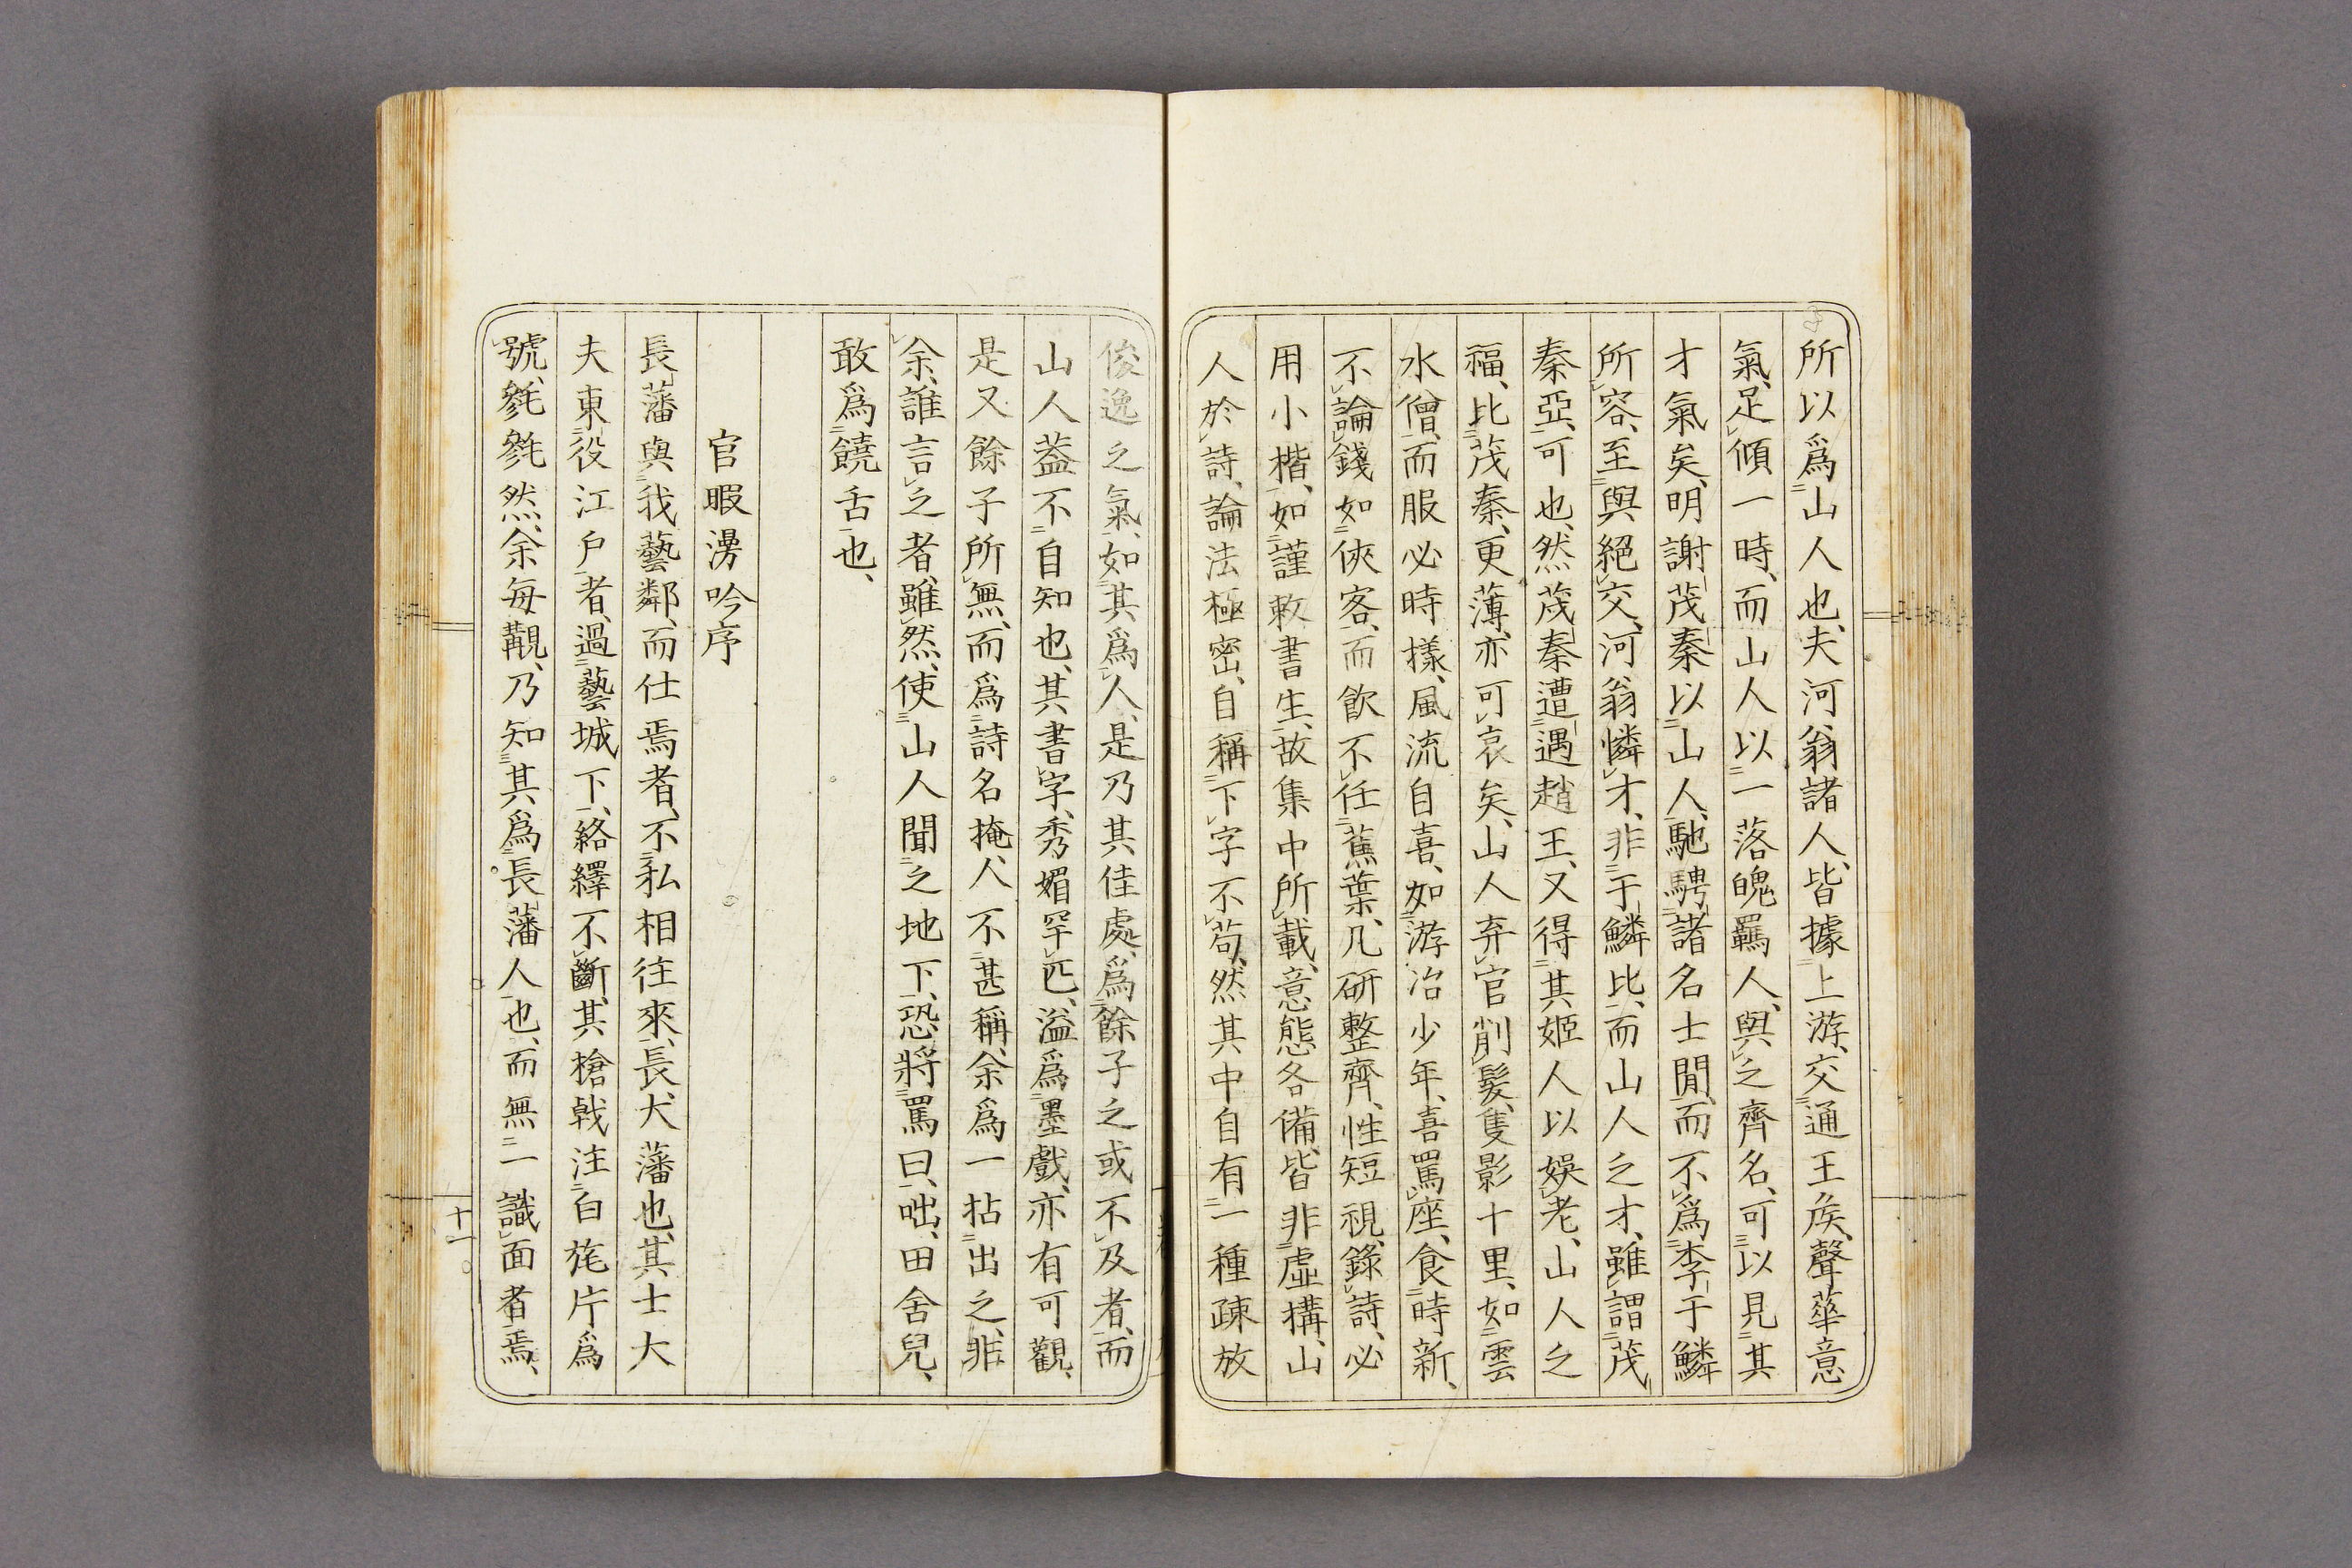 所以爲山人也、夫河翁諸人、皆據上游、交通王侯、聲華意
氣、足傾一時、而山人以一落魄羈人、與之齊名、可以見其
才氣矣、明謝茂秦以山人、馳騁諸名士間、而不爲李于鱗
所容、至與絕交、河翁憐才、非于鱗比、而山人之才、雖謂茂
秦亞、可也、然茂秦遭遇趙王、又得其姬人以娛老、山人之
福、比茂秦、更薄、亦可哀矣、山人弃官削髮、隻影十里、如雲
水僧、而服必時樣、風流自喜、如游冶少年、喜罵座、食時新、
不論錢、如俠客、而飲不任蕉葉、几研整齊、性短視、錄詩、必
用小楷、如謹敕書生、故集中所載、意態各備、皆非虛構、山
人於詩、論法極密、自稱下字不苟、然其中自有一種疎放
俊逸之氣、如其爲人、是乃其佳處、爲餘子之或不及者、而
山人葢不自知也、其書字、秀媚罕匹、溢爲墨戲、亦有可觀、
是又餘子所無、而爲詩名掩、人不甚稱、余爲一拈出之、非
余、誰言之者、雖然、使山人聞之地下、恐將罵曰、咄、田舍兒、
敢爲饒舌也、
官暇漫吟序
長藩與我藝鄰、而仕焉者、不私相往來、長大藩也、其士大
夫東役江戶者、過藝城下、絡繹不斷、其槍戟注白旄片爲
號、毿毿然、余每覯、乃知其爲長藩人也、而無一識面者焉、
十一